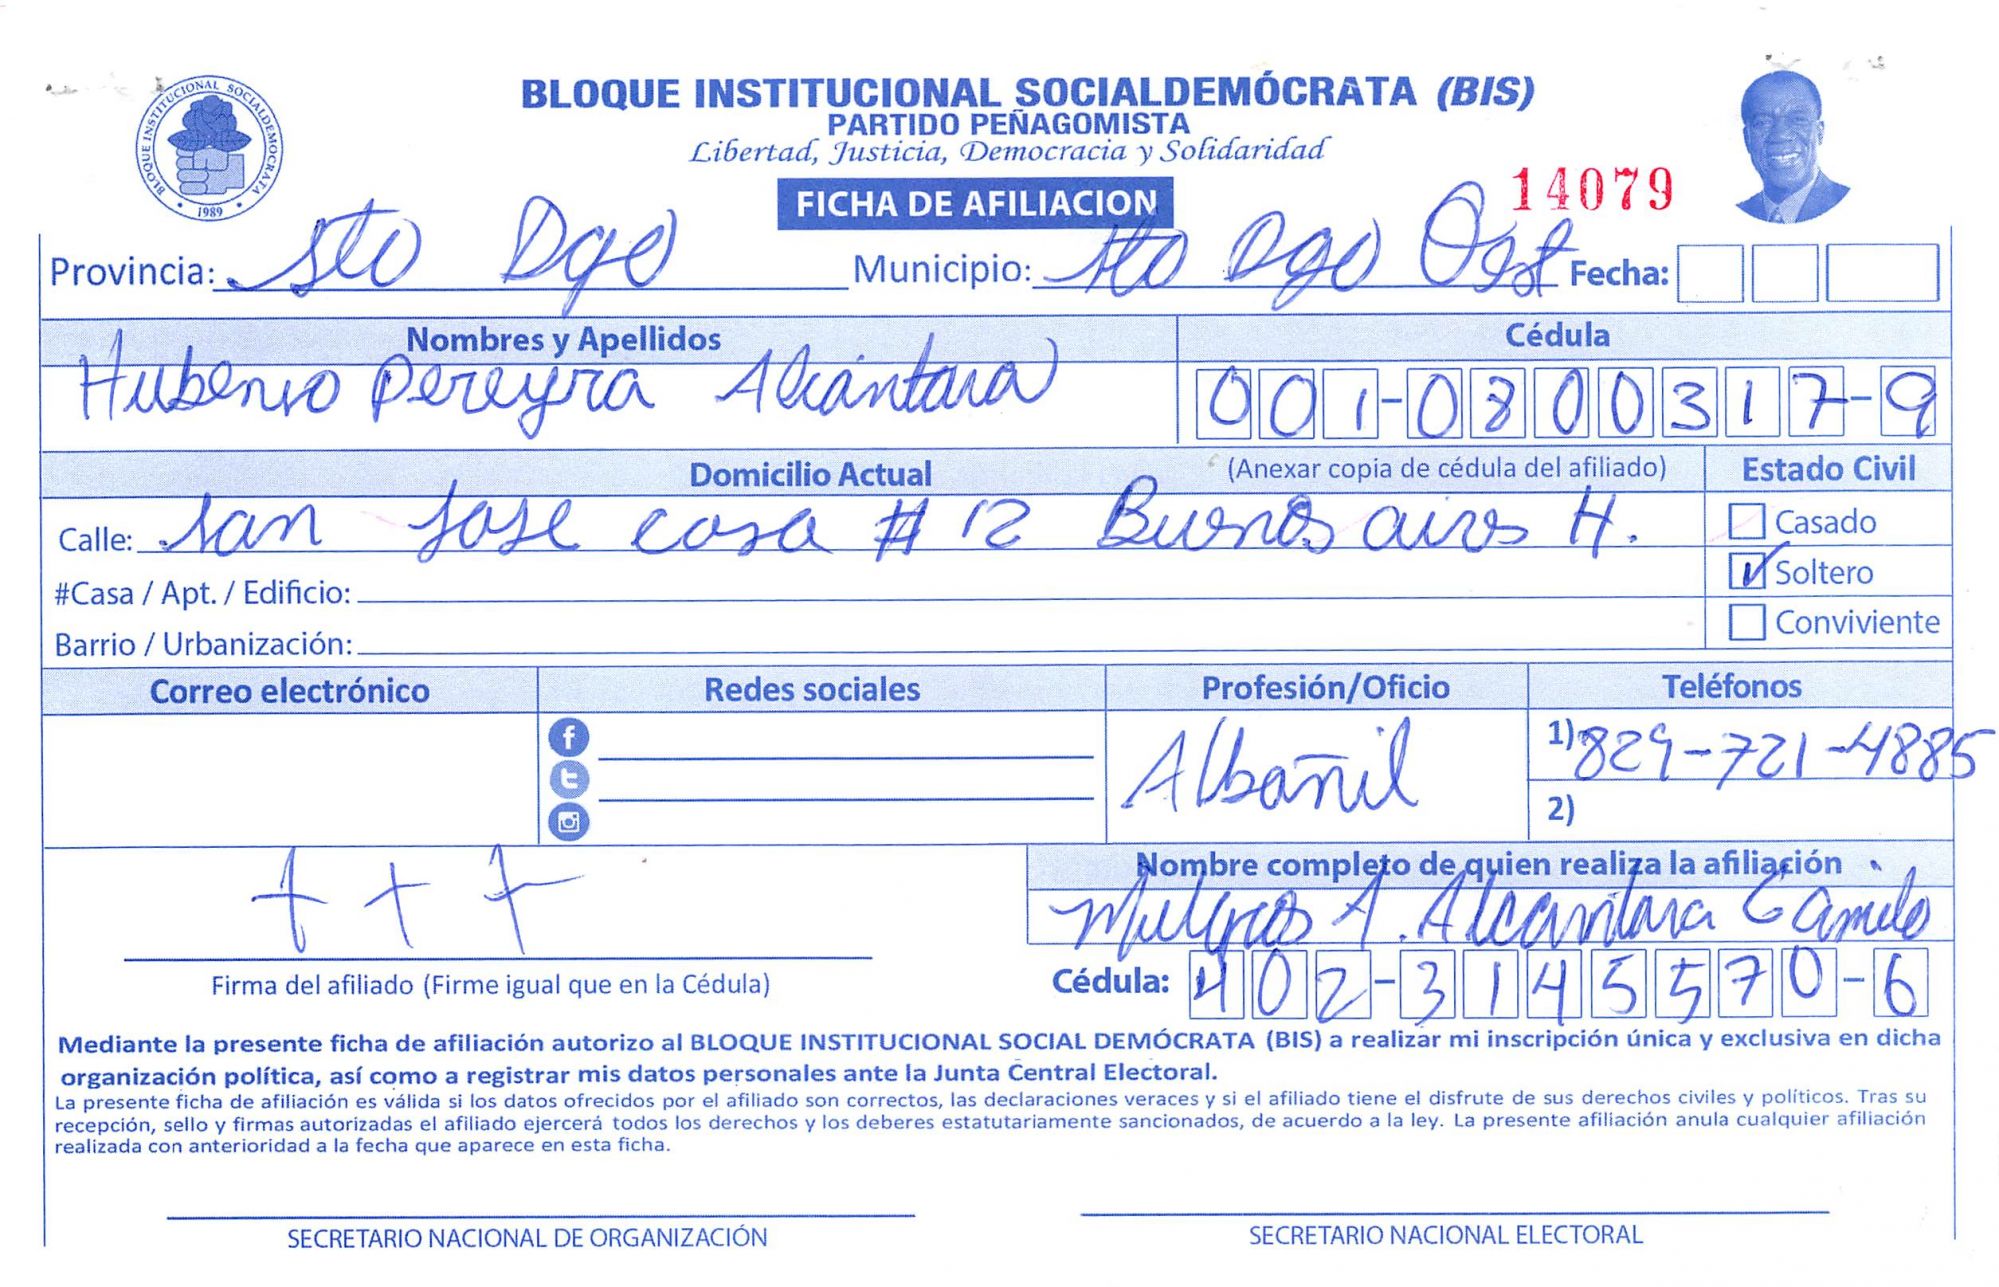 BLOQUE INSTITUCIONAL SOCIALDEMÓCRATA (BIS)
PARTIDO PEÑAGOMISTA
Libertad, Justicia, Democracia y Solidaridad
BLOQUE INSTITUCIONAL SOCIALDEMOCRATA
1989
FICHA DE AFILIACION
14079
Provincia: Sto Dgo Municipio: Sto Dgo Oest Fecha:
Nombres y Apellidos Cédula
Pereyra Alcántara 001-0800317-9
Domicilio Actual (Anexar copia de cédula del afiliado) Estado Civil
Calle: San Jose casa # 12 Buenos aires H. Casado
#Casa / Apt. / Edificio: Soltero
Barrio / Urbanización: Conviviente
Correo electrónico Redes sociales Profesión/Oficio Teléfonos
Albañil 1) 829-721-4885
2)
Nombre completo de quien realiza la afiliación
A. Alcantara Camilo
Firma del afiliado (Firme igual que en la Cédula) Cédula: 402-3145570-6
Mediante la presente ficha de afiliación autorizo al BLOQUE INSTITUCIONAL SOCIAL DEMÓCRATA (BIS) a realizar mi inscripción única y exclusiva en dicha
organización política, así como a registrar mis datos personales ante la Junta Central Electoral.
La presente ficha de afiliación es válida si los datos ofrecidos por el afiliado son correctos, las declaraciones veraces y si el afiliado tiene el disfrute de sus derechos civiles y políticos. Tras su
recepción, sello y firmas autorizadas el afiliado ejercerá todos los derechos y los deberes estatutariamente sancionados, de acuerdo a la ley. La presente afiliación anula cualquier afiliación
realizada con anterioridad a la fecha que aparece en esta ficha.
SECRETARIO NACIONAL DE ORGANIZACIÓN SECRETARIO NACIONAL ELECTORAL